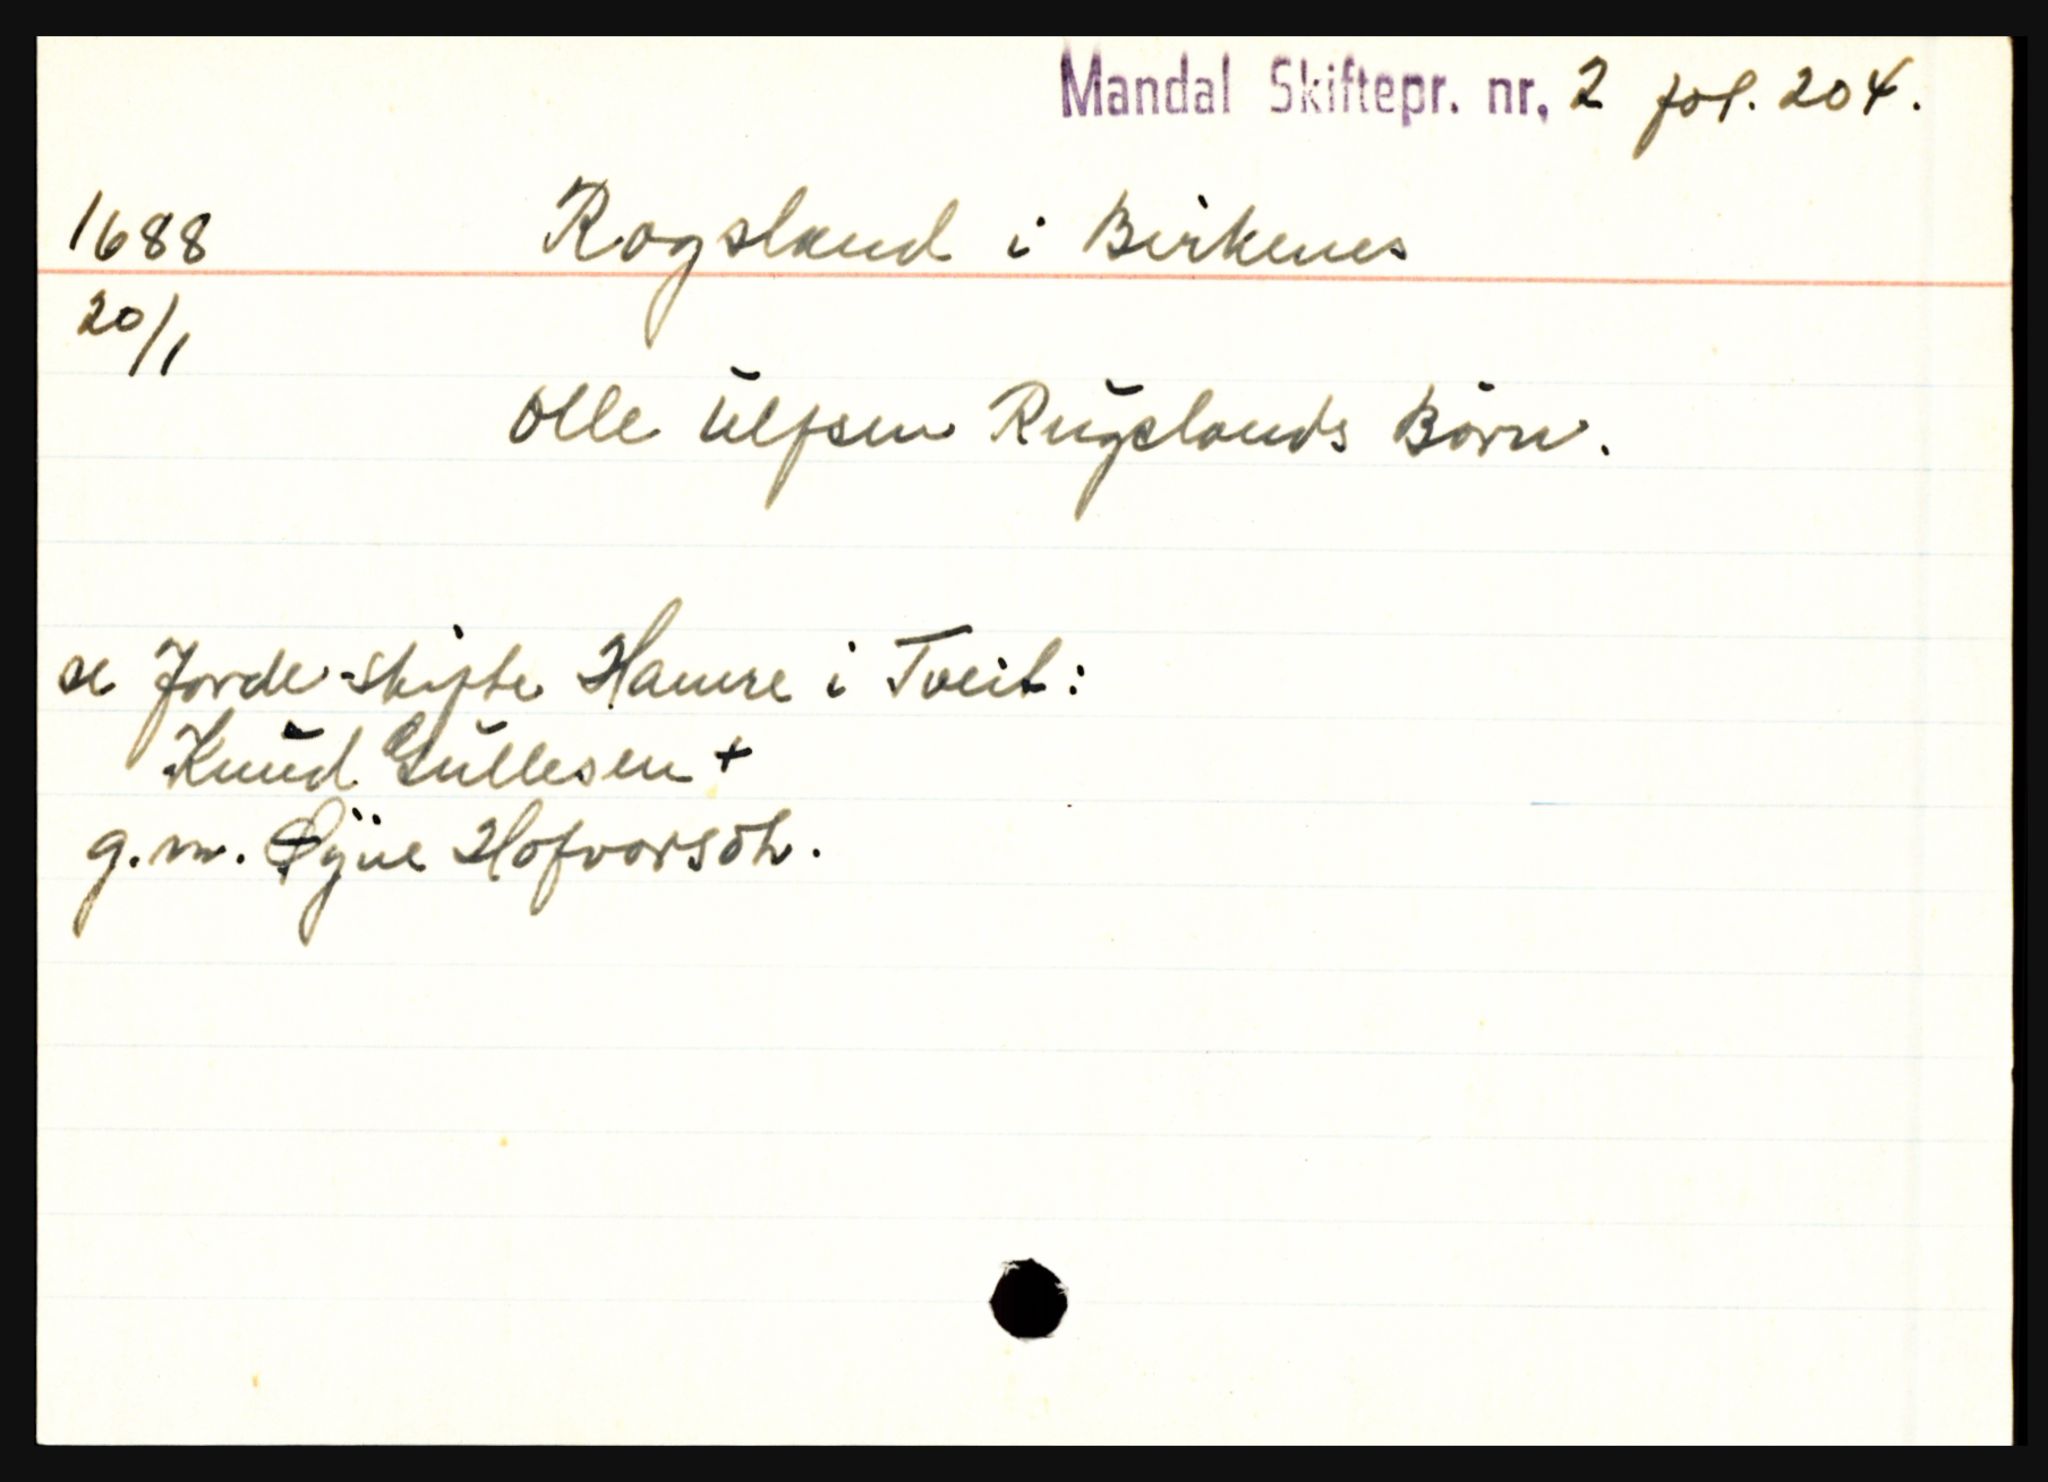 Mandal Skiftepr. nr. 2 fol. 204.
1688 Rogsland i Birkenes
20/1
Olle Ulfsen Rugslands Børn.
se Jorde-skifte Hamre i Tveit:
Knud Gullesen +
g.m. Øÿne Hofvorsdh.